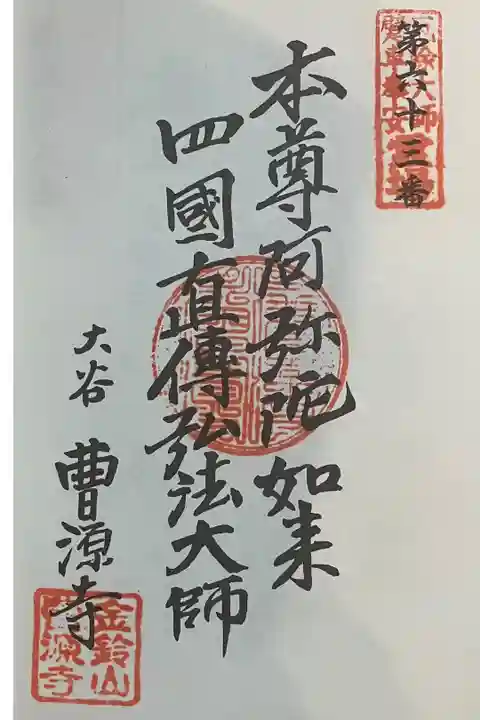 第六十三番
本尊阿弥陀如来
四國直傳弘法大師
大谷
曹源寺
金鈴山
曹源寺